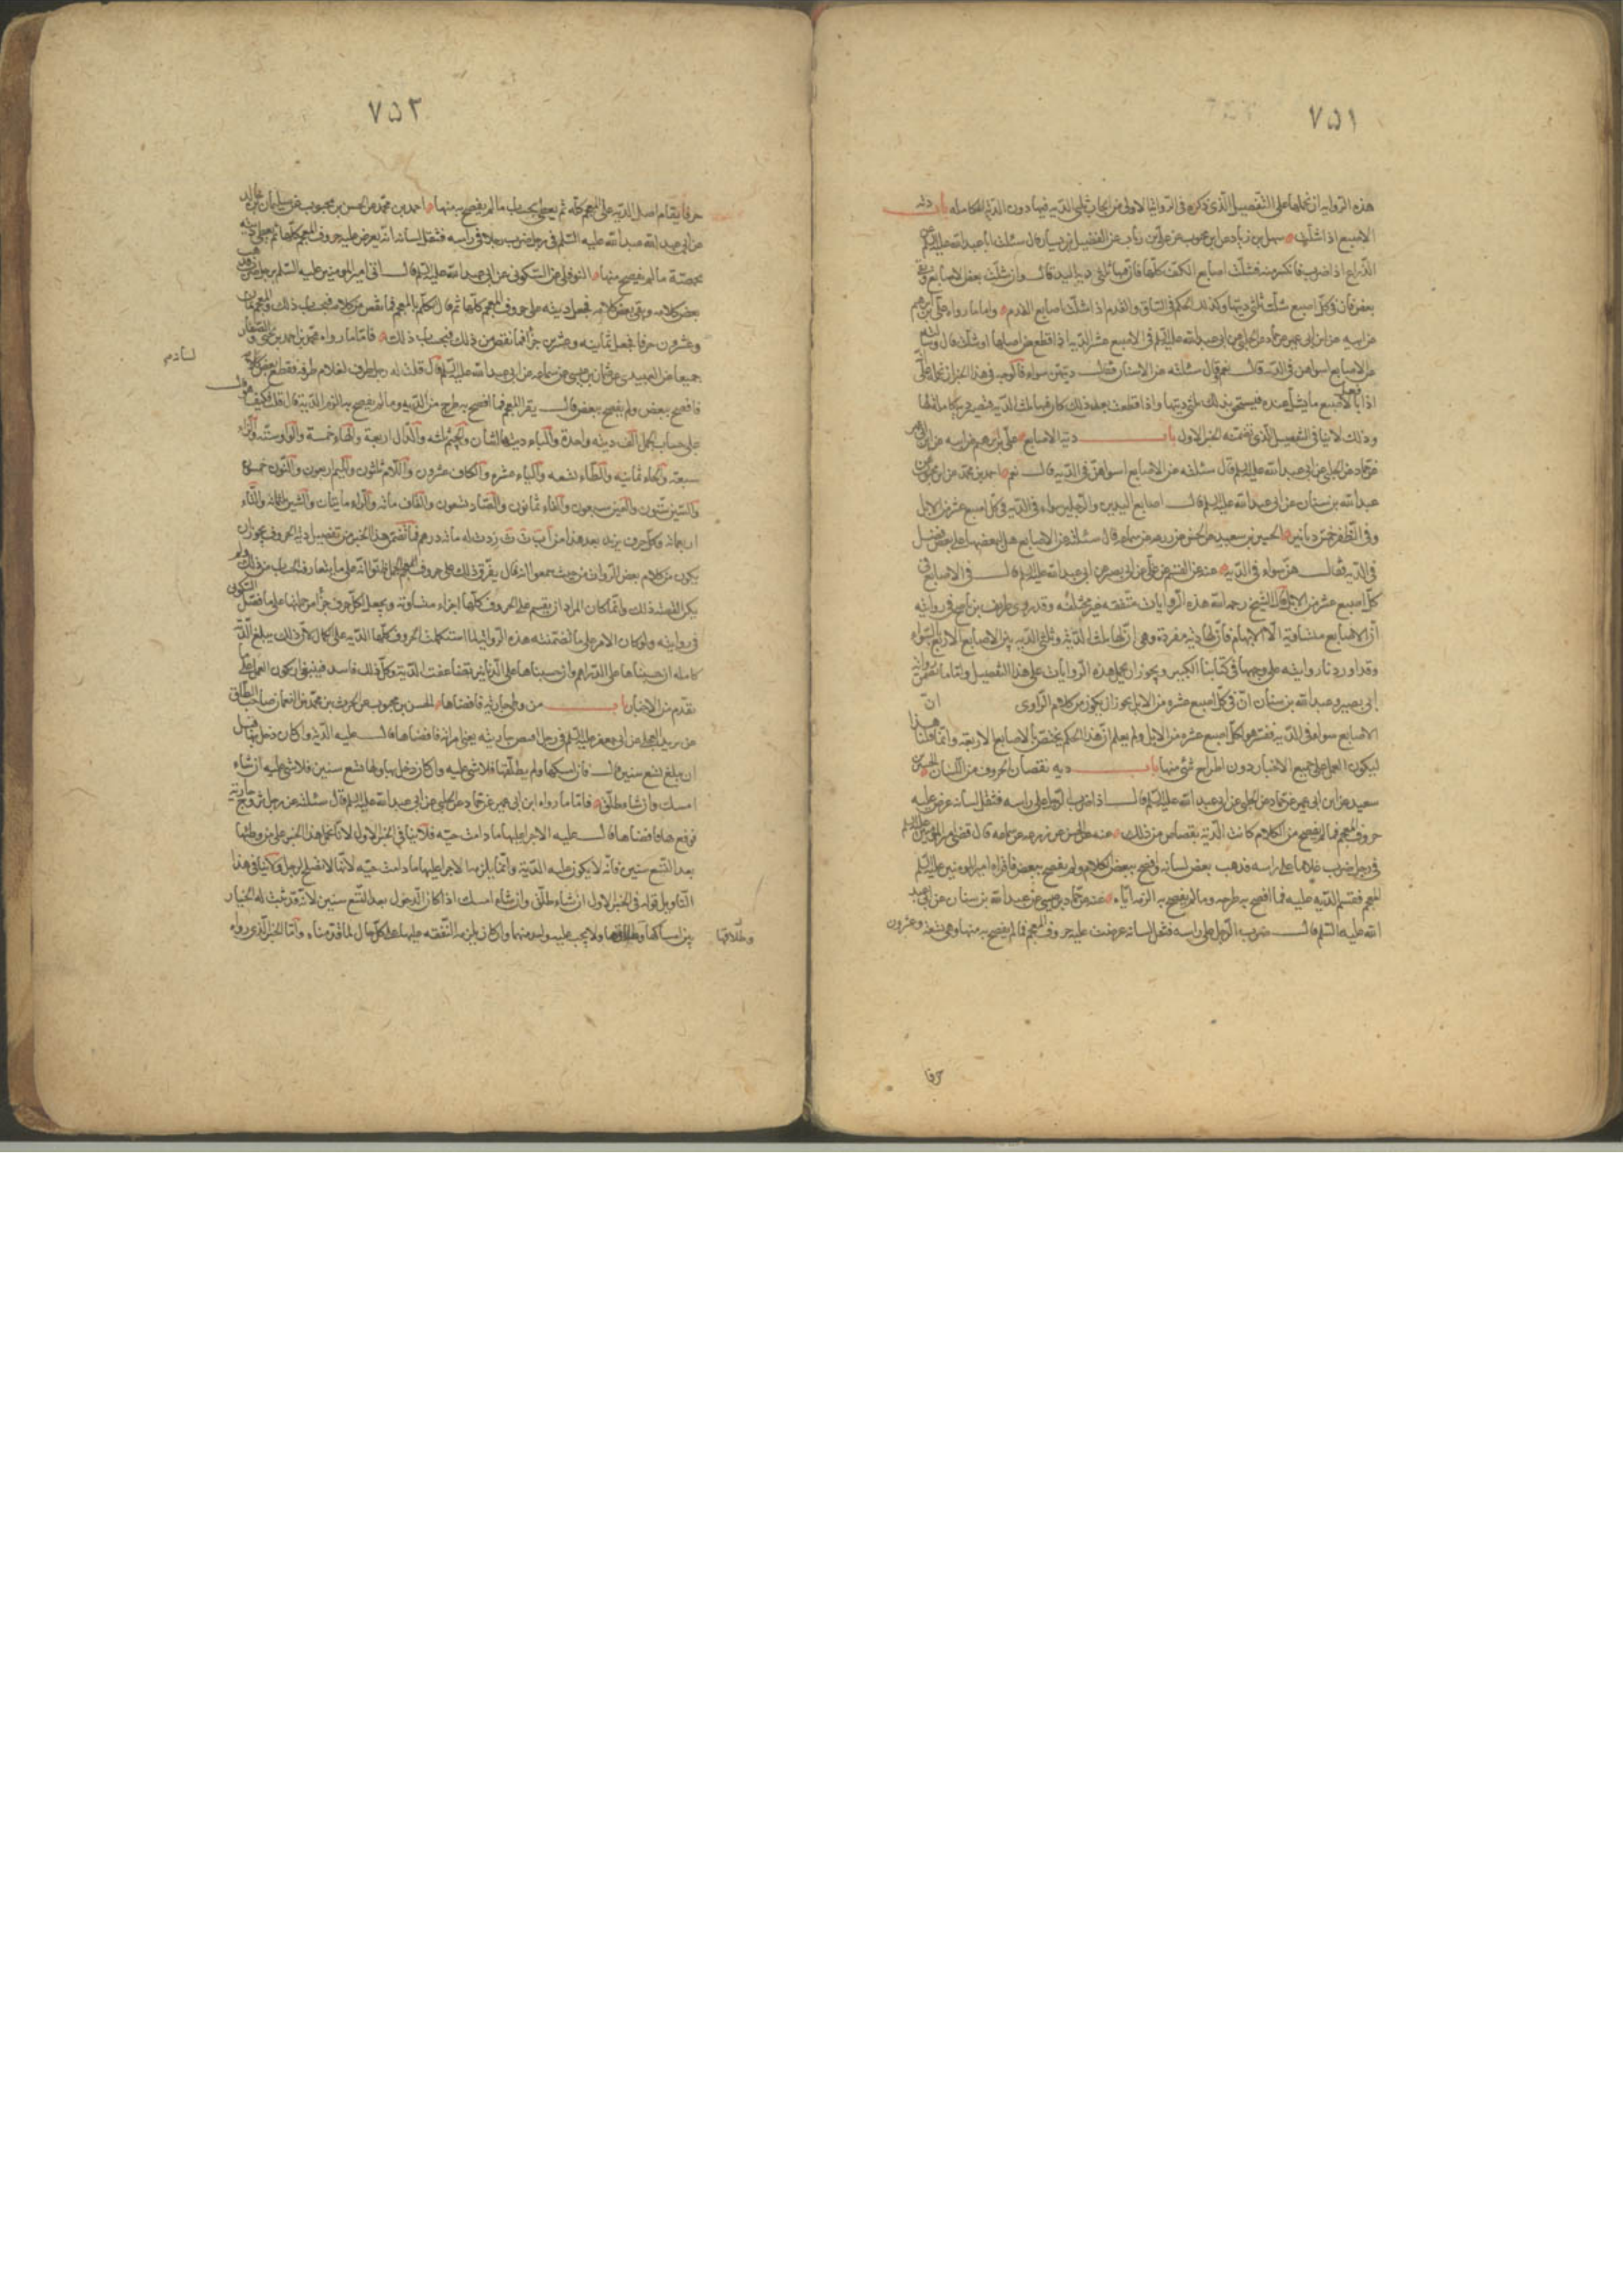 ٧٥١
هذه الرواية ان نحملها على التفصيل الذي ذكره في الرواية الاولى من ايجاب ثلثي الدية فيها دون الدية الكاملة باب دية
الاصبع اذا شلت سهل بن زياد عن ابن محبوب عن علي بن رئاب عن الفضيل بن يسار قال سئلت ابا عبد الله عليه السلم عن
الذراع اذا ضرب فانكسر منه فشلت اصابع الكف كلها فان فيها ثلثي دية اليد قال وان شلت بعض الاصابع وبقي
بعض فان في كل اصبع شلت ثلثي ديتها وكذلك الحكم في الساق والقدم اذا شلت اصابع القدم واما ما رواه علي بن ابرهيم
عن ابيه عن ابن ابي عمير عن حماد عن الحلبي عن ابي عبد الله عليه السلم في الاصبع عشر الدية اذا قطع من اصلها او شلت قال وسئلته
عن الاصابع اسواء هن في الدية قال نعم قال سئلته عن الاسنان فقال ديتهن سواء فالوجه في هذا الخبر ان نحمله على
وذلك لا ينافي التفصيل الذي تضمنه الخبر الاول باب دية الاصابع علي بن ابرهيم عن ابيه عن ابن ابي عمير
عن حماد عن الحلبي عن ابي عبد الله عليه السلم قال سئلته عن الاصابع اسواء هن في الدية قال نعم احمد بن محمد عن ابن محبوب عن
عبد الله بن سنان عن ابي عبد الله عليه السلم قال اصابع اليدين والرجلين سواء في الدية في كل اصبع عشر من الابل
وفي الظفر خمس دنانير الحسين بن سعيد عن الحسن عن زرعه عن سماعه قال سئلته عن الاصابع هل لبعضها على بعض فضل
في الدية فقال هن سواء في الدية عنه عن القسم عن علي عن ابي بصير عن ابي عبد الله عليه السلم قال في الاصابع في
كل اصبع عشر من الابل قال الشيخ رحمه الله هذه الروايات متفقه غير مختلفه وقد روى ظريف بن ناصح في روايته
ان الاصابع متساوية الا الابهام فان لها دية مفردة وهي ان لها ثلث الدية وثلثي الدية بين الاصابع الاربع بالسواء
وقد اوردنا روايته على وجهها في كتابنا الكبير ويجوز ان نحمل هذه الروايات على هذا التفصيل واما ما تضمن رواية
ابي بصير وعبد الله بن سنان ان في كل اصبع عشره من الابل يجوز ان يكون من كلام الراوي ان
الاصابع سواء في الدية ففسر هو لكل اصبع عشره من الابل ولم يعلم ان هذا الحكم يختص بالاصابع الاربعة وانما قلنا هذا
ليكون العمل على جميع الاخبار دون اطراح شئ منها باب دية نقصان الحروف من اللسان الحسين بن
سعيد عن ابن ابي عمير عن حماد عن الحلبي عن ابي عبد الله عليه السلم قال اذا ضرب الرجل على راسه فثقل لسانه عرض عليه
حروف المعجم فما لم يفصح من الكلام كانت الدية بقصاص من ذلك عنه عن الحسن عن زرعه عن سماعه قال قضى امير المؤمنين عليه السلم
في رجل ضرب غلاما على راسه فذهب بعض لسانه وافصح ببعض الكلام ولم يفصح ببعض فاقراه امير المؤمنين عليه السلم
المعجم فقسم الدية عليه فما افصح به طرحه وما لم يفصح به الزمه اياه عنه عن حماد بن عيسى عن عبد الله بن سنان عن ابي عبد
الله عليه السلم قال ضرب الرجل على راسه فثقل لسانه عرضت عليه حروف المعجم فما لم يفصح به منها وهي تسعة وعشرون
حرفا
٧٥٢
حرفا يقام اصل الدية على المعجم كله ثم يعطى بحساب ما لم يفصح به منها احمد بن محمد عن الحسن بن محبوب عن سليمان بن خالد
عن ابي عبد الله عليه السلم في رجل ضرب رجلا في راسه فثقل لسانه انه يعرض عليه حروف المعجم كلها ثم يعطى دية
بحصة ما لم يفصح منها النوفلي عن السكوني عن ابي عبد الله عليه السلم قال اتى امير المؤمنين عليه السلم برجل ضرب فذهب
بعض كلامه وبقي بعض كلامه فجعل ديته على حروف المعجم كلها ثم قال تكلم بالمعجم فما نقص من كلامه فبحساب ذلك والمعجم ثمانية
وعشرون حرفا فجعل ثمانيه وعشرين جزأ فما نقص من ذلك فبحساب ذلك فاما ما رواه محمد بن احمد بن يحيى والصفار
جميعا عن العبيدي عن عثمان بن عيسى عن سماعه عن ابي عبد الله عليه السلم قال قلت له رجل طرف لغلام طرفه فقطع بعض لسانه
فافصح ببعض ولم يفصح ببعض قال يقرا المعجم فما افصح به طرح من الدية وما لم يفصح به الزم الدية قال قلت فكيف هو قال
على حساب الجمل الف ديته واحدة والباء ديتها اثنان والجيم ثلثه والدال اربعة والهاء خمسة والواو ستة والزاء
سبعة والحاء ثمانية والطاء تسعه والياء عشره والكاف عشرون واللام ثلثون والميم اربعون والنون خمسون
والسين ستون والعين سبعون والفاء ثمانون والصاد تسعون والقاف مائه والراء مايتان والشين ثلثمائة والتاء
اربعمائة وكل حرف يزيد بعد هذا من ا ب ت ث زدت له مائة درهم فما تضمن هذا الخبر من تفصيل دية الحروف يجوز ان
يكون من كلام بعض الرواة من حيث سمعوا انه قال يفرق ذلك على حروف الجمل ظنوا انه على ما يتعارفه الحساب من ذلك ولم
يكن القصد ذلك وانما كان المراد ان يقسم على الحروف كلها اجزاء متساوية ويجعل لكل حرف جزأ من جملتها على ما فصل السكوني
في روايته ولو كان الامر على ما تضمنته هذه الرواية لما استكملت الحروف كلها الدية على الكمال لان ذلك يبلغ الدية
كاملة ان حسبناها على الدراهم وان حسبناها على الدنانير تضاعفت الدية وكل ذلك فاسد فينبغي ان يكون العمل على ما
تقدم من الاخبار باب من وطى جارية فافضاها الحسن بن محبوب عن الحرث بن محمد بن النعمان صاحب الطاق
عن بريد العجلي عن ابي جعفر عليه السلم في رجل افتض جارية يعني امراته فافضاها قال عليه الدية ان كان دخل بها قبل
ان يبلغ تسع سنين قال فان امسكها ولم يطلقها فلا شئ عليه وان كان دخل بها ولها تسع سنين فلا شئ عليه ان شاء
امسك وان شاء طلق فاما ما رواه ابن ابي عمير عن حماد عن الحلبي عن ابي عبد الله عليه السلم قال سئلته عن رجل تزوج جارية
فوقع بها فافضاها قال عليه الاجراء عليها ما دامت حية فلا ينافي الخبر الاول لانا نحمل هذا الخبر على من وطئها
بعد التسع سنين فانه لا يكون عليه الدية وانما يلزمه الاجراء عليها ما دامت حية لانها لا تصلح لرجل ولا ينافي هذا
التاويل قوله في الخبر الاول ان شاء طلق وان شاء امسك اذا كان الدخول بعد التسع سنين لانه قد ثبت له الخيار
بين امساكها وطلاقها ولا يجب عليه واحد منهما وان كان يلزمه النفقة عليها على كل حال لما قدمناه واما الخبر الذي رواه
وطلاقها